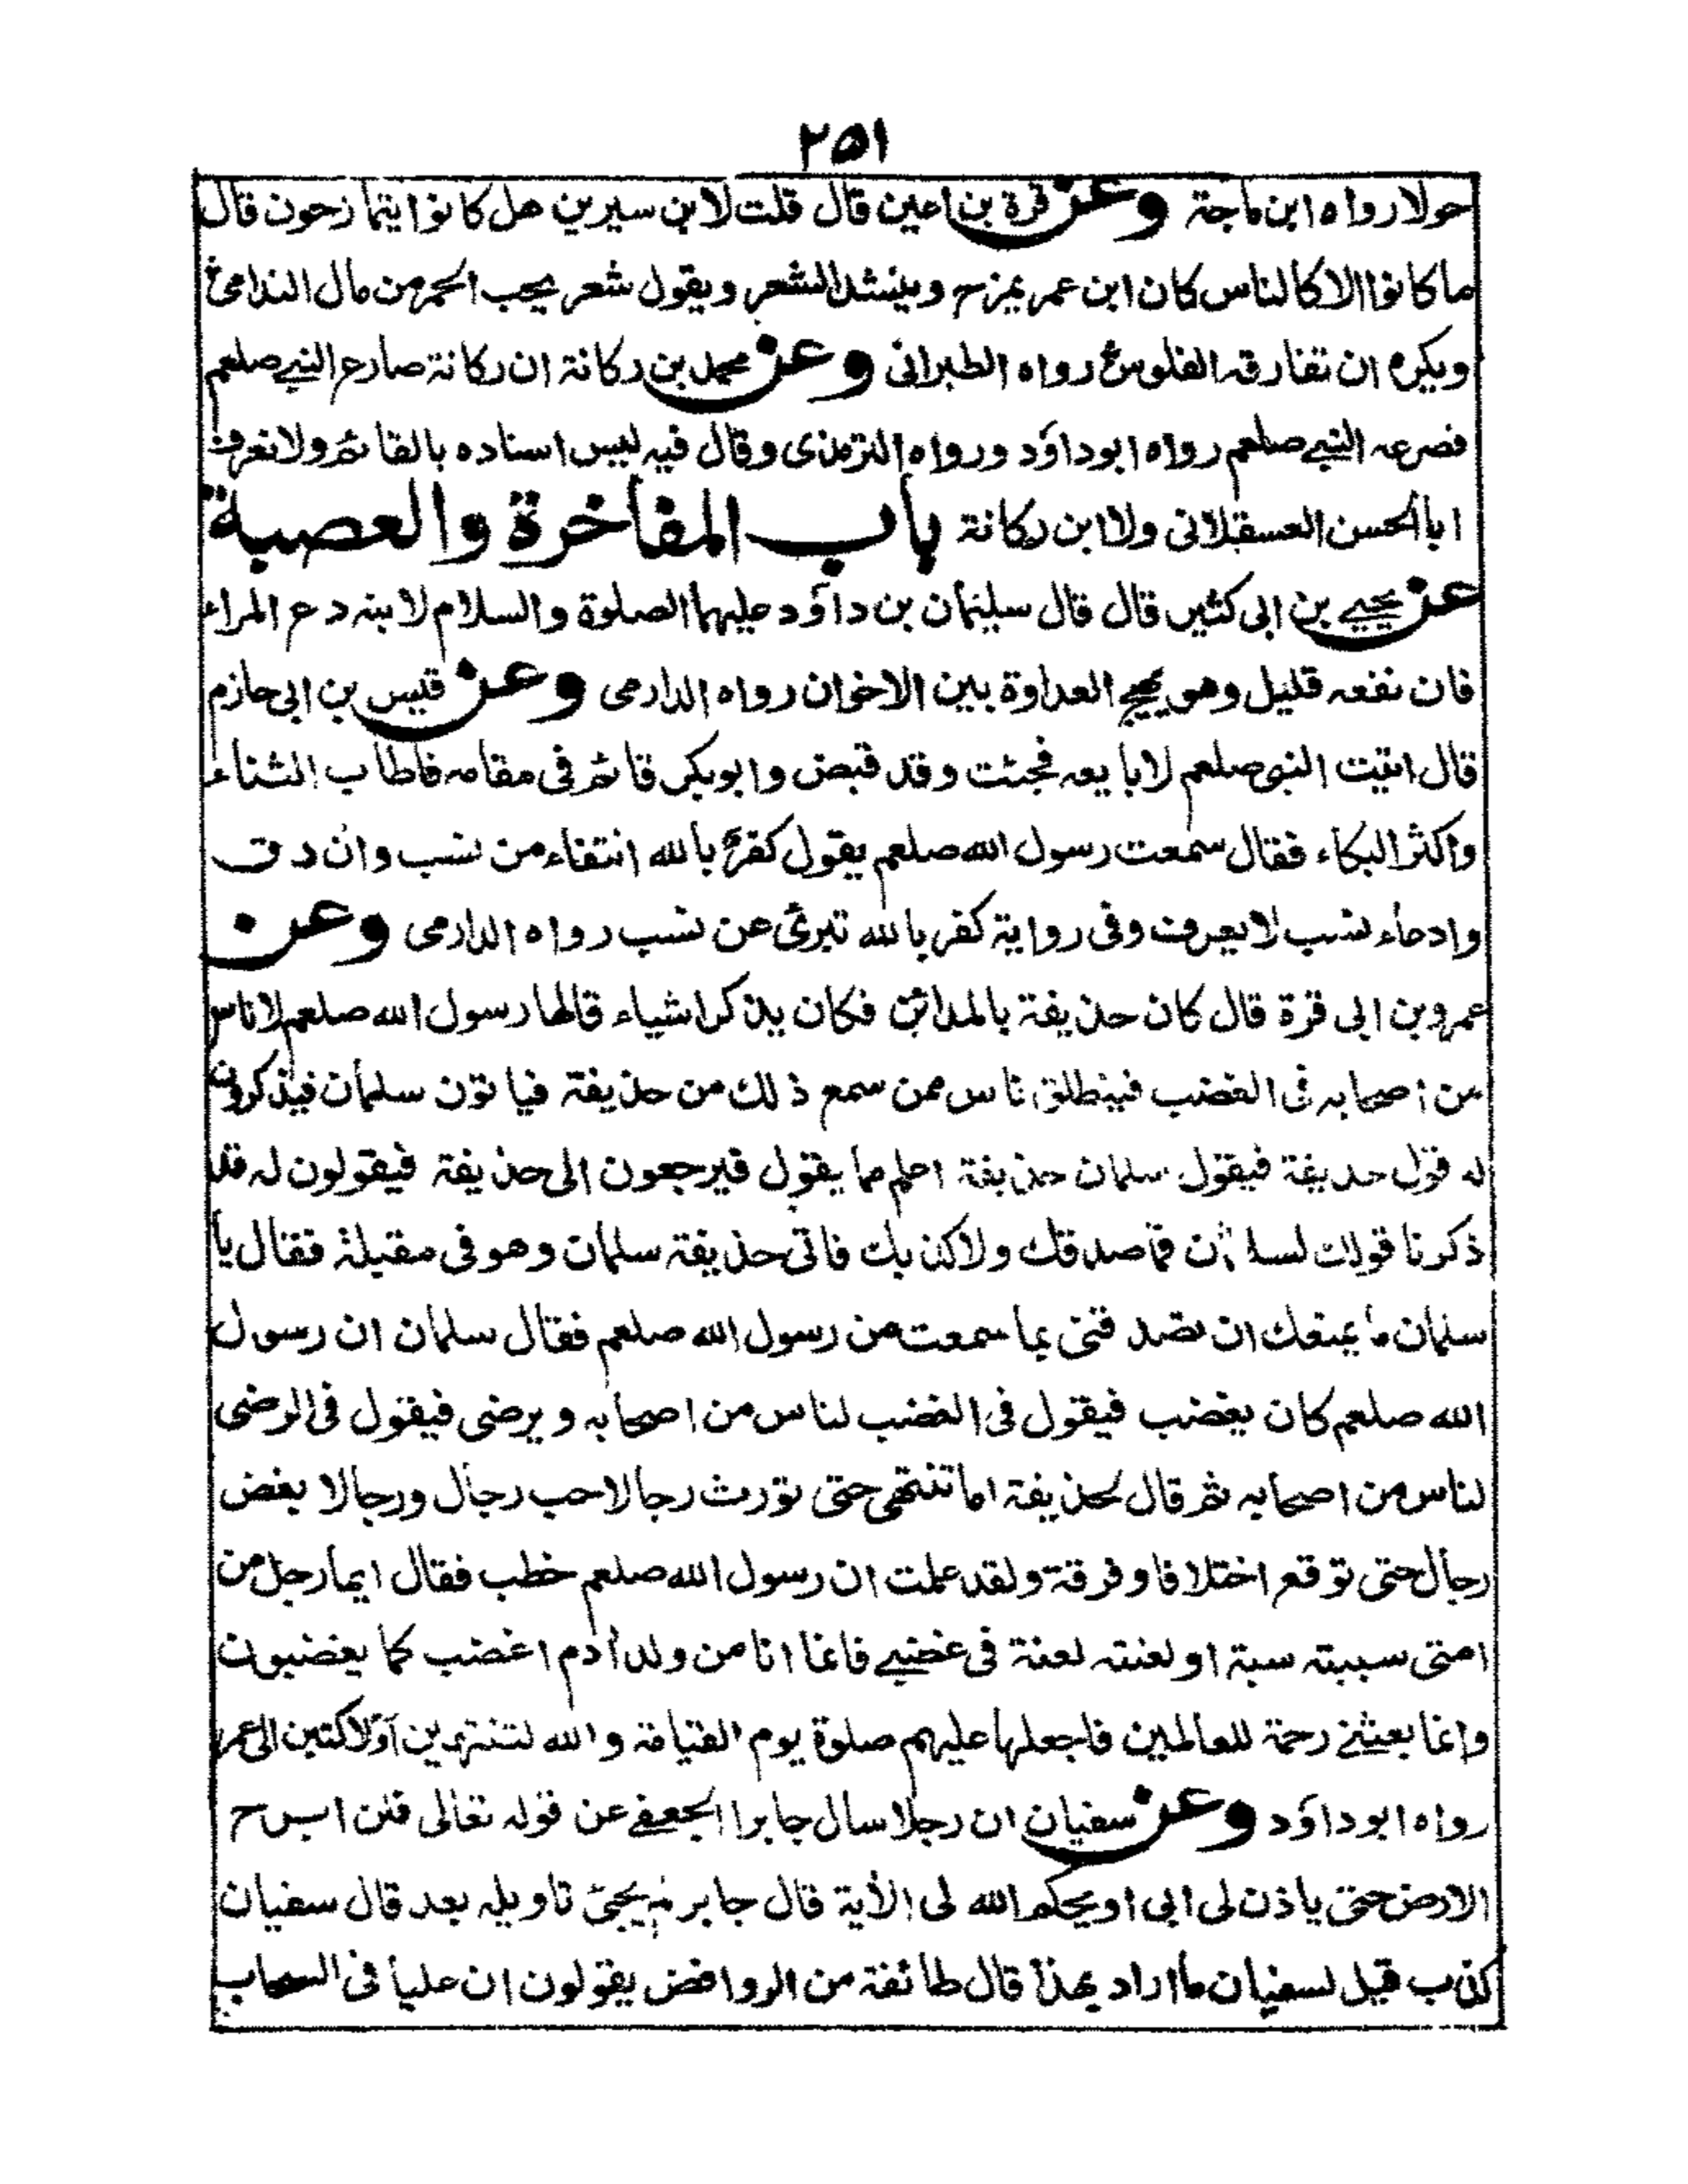 ٢٥١
حولا رواه ابن ماجة وعن قرة بن اعين قال قلت لابن سيرين هل كانوا يتمازحون قال
ما كانوا الا كالناس كان ابن عمر يمزح وينشد الشعر ويقول شعر يحب الخمر من مال الندامى
ويكره ان تفارقه الفلوس رواه الطبرانى وعن محمد بن ركانة ان ركانة صارع النبي صلعم
فصرعه النبي صلعم رواه ابو داؤد ورواه الترمذى وقال فيه ليس اسناده بالقائم ولا نعرف
ابا الحسن العسقلانى ولا ابن ركانة باب المفاخرة والعصبة
عن يحيي بن ابى كثير قال قال سليمان بن داؤد عليهما الصلوة والسلام لابنه دع المراء
فان نفعه قليل وهو يهيج العداوة بين الاخوان رواه الدارمى وعن قيس بن ابى حازم
قال اتيت النبى صلعم لابايعه فجئت وقد قبض وابوبكر قائم فى مقامه فاطاب الثناء
واكثر البكاء فقال سمعت رسول الله صلعم يقول كفر بالله انتفاء من نسب وان دق
وادعاء نسب لا يعرف وفى رواية كفر بالله تبرئ عن نسب رواه الدارمى وعن
عمرو بن ابى قرة قال كان حذيفة بالمدائن فكان يذكر اشياء قالها رسول الله صلعم لاناس
من اصحابه فى الغضب فينطلق ناس ممن سمع ذلك من حذيفة فياتون سلمان فيذكرون
له قول حذيفة فيقول سلمان حذيفة اعلم مما يقول فيرجعون الى حذيفة فيقولون له قد
ذكرنا قولك لسلمان فما صدقك ولا كذبك فاتى حذيفة سلمان وهو فى مقبلة فقال يا
سلمان ما يمنعك ان تصدقنى بما سمعت من رسول الله صلعم فقال سلمان ان رسول
الله صلعم كان يغضب فيقول فى الغضب لناس من اصحابه ويرضى فيقول فى الرضى
لناس من اصحابه ثم قال لحذيفة اما تنتهى حتى تورث رجالا حب رجال ورجالا بغض
رجال حتى توقع اختلافا وفرقة ولقد علمت ان رسول الله صلعم خطب فقال ايما رجل من
امتى سببته سبة او لعنته لعنة فى غضبي فانما انا من ولد آدم اغضب كما يغضبون
وانما بعثني رحمة للعالمين فاجعلها عليهم صلوة يوم القيامة والله لتنتهين او لاكتبن الى عمر
رواه ابو داؤد وعن سفيان ان رجلا سال جابرا الجعفي عن قوله تعالى فلن ابرح
الارض حتى ياذن لى ابى او يحكم الله لى الأية قال جابر لم يجئ تاويله بعد قال سفيان
كذب قيل لسفيان ما اراد بهذا قال طائفة من الروافض يقولون ان عليا فى السحاب